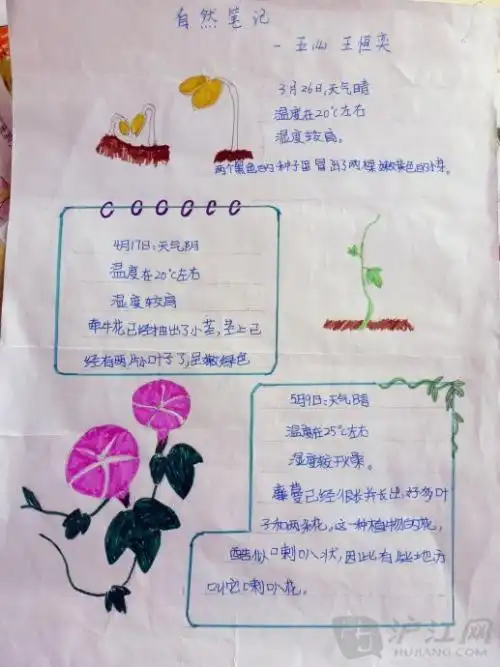 自然笔记
- 五(4) 王恒奕
3月26日:天气晴
温度在20℃左右
湿度较高。
两个黑色的种子里冒出了两棵嫩黄色的小芽。
4月17日:天气阴
温度在20℃左右
湿度较高
牵牛花已经抽出了小茎,茎上已
经有两片小叶子了,呈嫩绿色
5月9日:天气晴
温度在25℃左右
湿度较干燥。
藤蔓已经很长并长出好多叶
子和两朵花,这一种植物的花,
酷似喇叭状,因此有些地方
叫它喇叭花。
沪江网
HUJIANG.COM